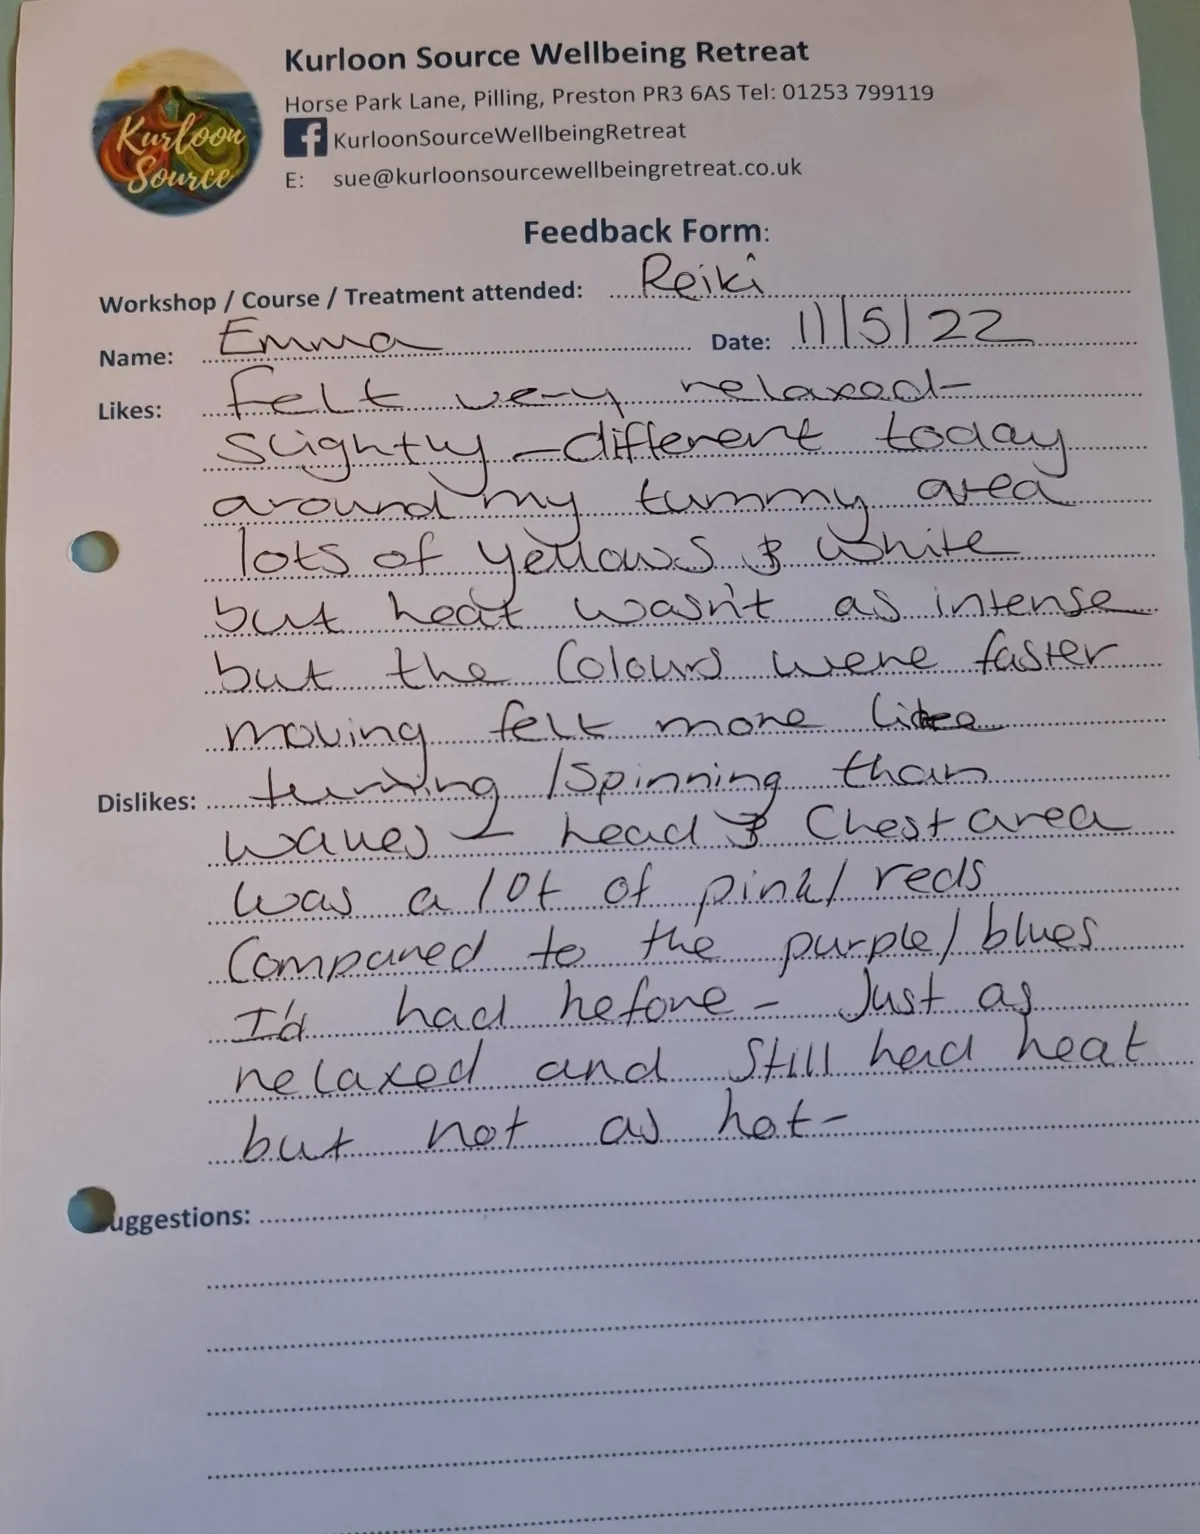 Kurloon Source
Kurloon Source Wellbeing Retreat
Horse Park Lane, Pilling, Preston PR3 6AS Tel: 01253 799119
KurloonSourceWellbeingRetreat
E: sue@kurloonsourcewellbeingretreat.co.uk
Feedback Form:
Workshop / Course / Treatment attended: Reiki
Name: Emma Date: 11/5/22
Likes: felt very relaxed -
slightly - different today
around my tummy area
lots of yellows & white
but heat wasn't as intense
but the colours were faster
moving felt more like
Dislikes: turning / spinning than
waves - head & Chest area
was a lot of pink/ reds
Compared to the purple/ blues
I'd had before - Just as
relaxed and still had heat
but not as hot -
uggestions: